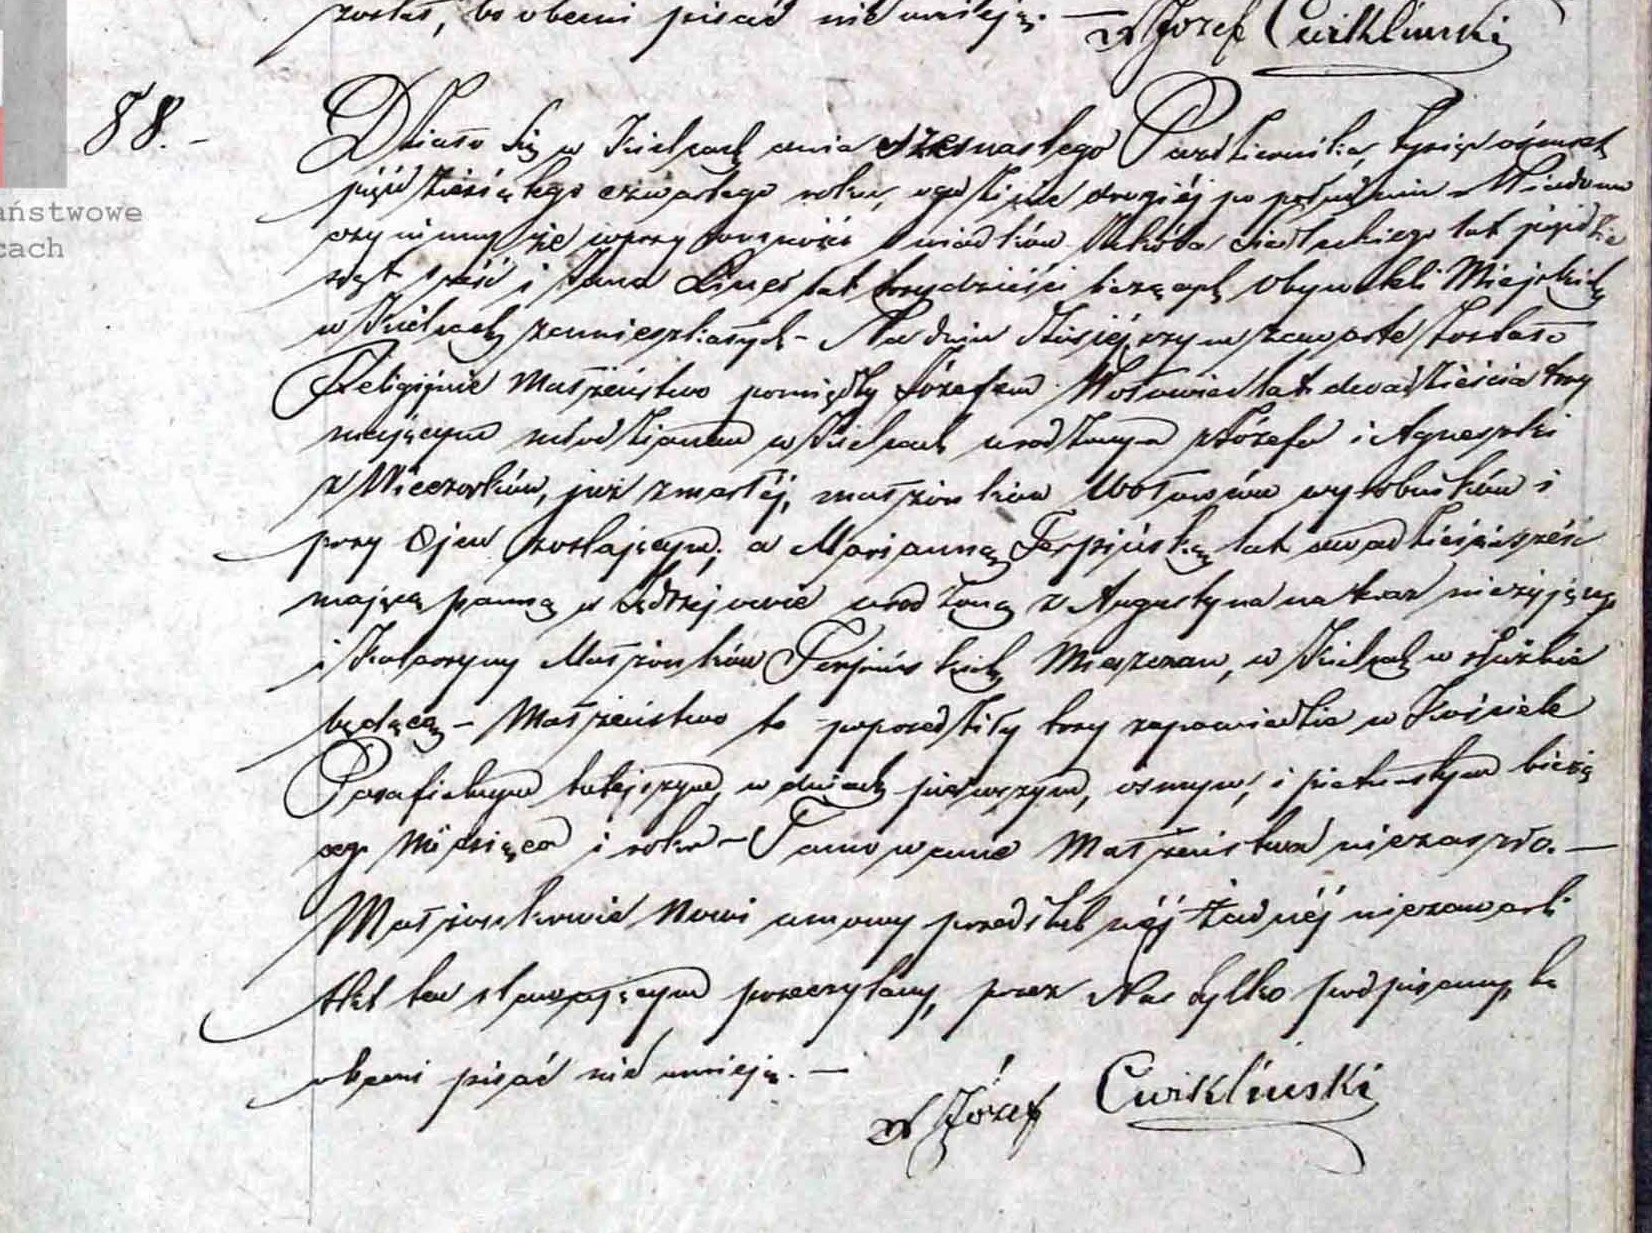 został, bo obecni pisać nie umieją. —
X Józef Cwikliński
aństwowe
cach
88. -
Działo się w Kielcach dnia szesnastego Pazdziernika, tysiąc ośmset
pięćdziesiątego czwartego roku, o godzinie drugiéj po południu - Wiadomo
czynimy że w przytomności świadków Jakóba Siedleckiego lat pięćdzie
siąt sześć i Jana lat trzydzieści liczących Obywateli Miejskich
w Kielcach zamieszkałych - Na dniu dzisiéjszym zawarte zostało
Religijnie Małżeństwo pomiędzy Józefem Wołowiec lat dwadzieścia trzy
mającym młodzianem w Kielcach urodzonym z Józefa i Agnieszki
z Wieczorków, już zmarłéj, małżonków Wołowiów wyrobników i
przy Ojcu zostającym; a Marianną Terpińską lat dwadzieścia sześć
mającą panną w Jędrzejowie urodzoną z Augustyna na teraz nieżyjącego
i Katarzyny Małżonków Terpińskich Mieszczan, w Kielcach w służbie
będącą - Małżeństwo to poprzedziły trzy zapowiedzie w Kościele
Parafialnym tutejszym, w dniach pierwszym, osmym, i pietnastym bieżą
cego Miesiąca i roku - Tamowanie Małżeństwa niezaszło. —
Małżonkowie Nowi umowy przedślubnéj żadnéj niezawarli
Akt ten stawającym przeczytany, przez Nas tylko podpisany, bo
obecni pisać nie umieją. —
X Józef Cwikliński